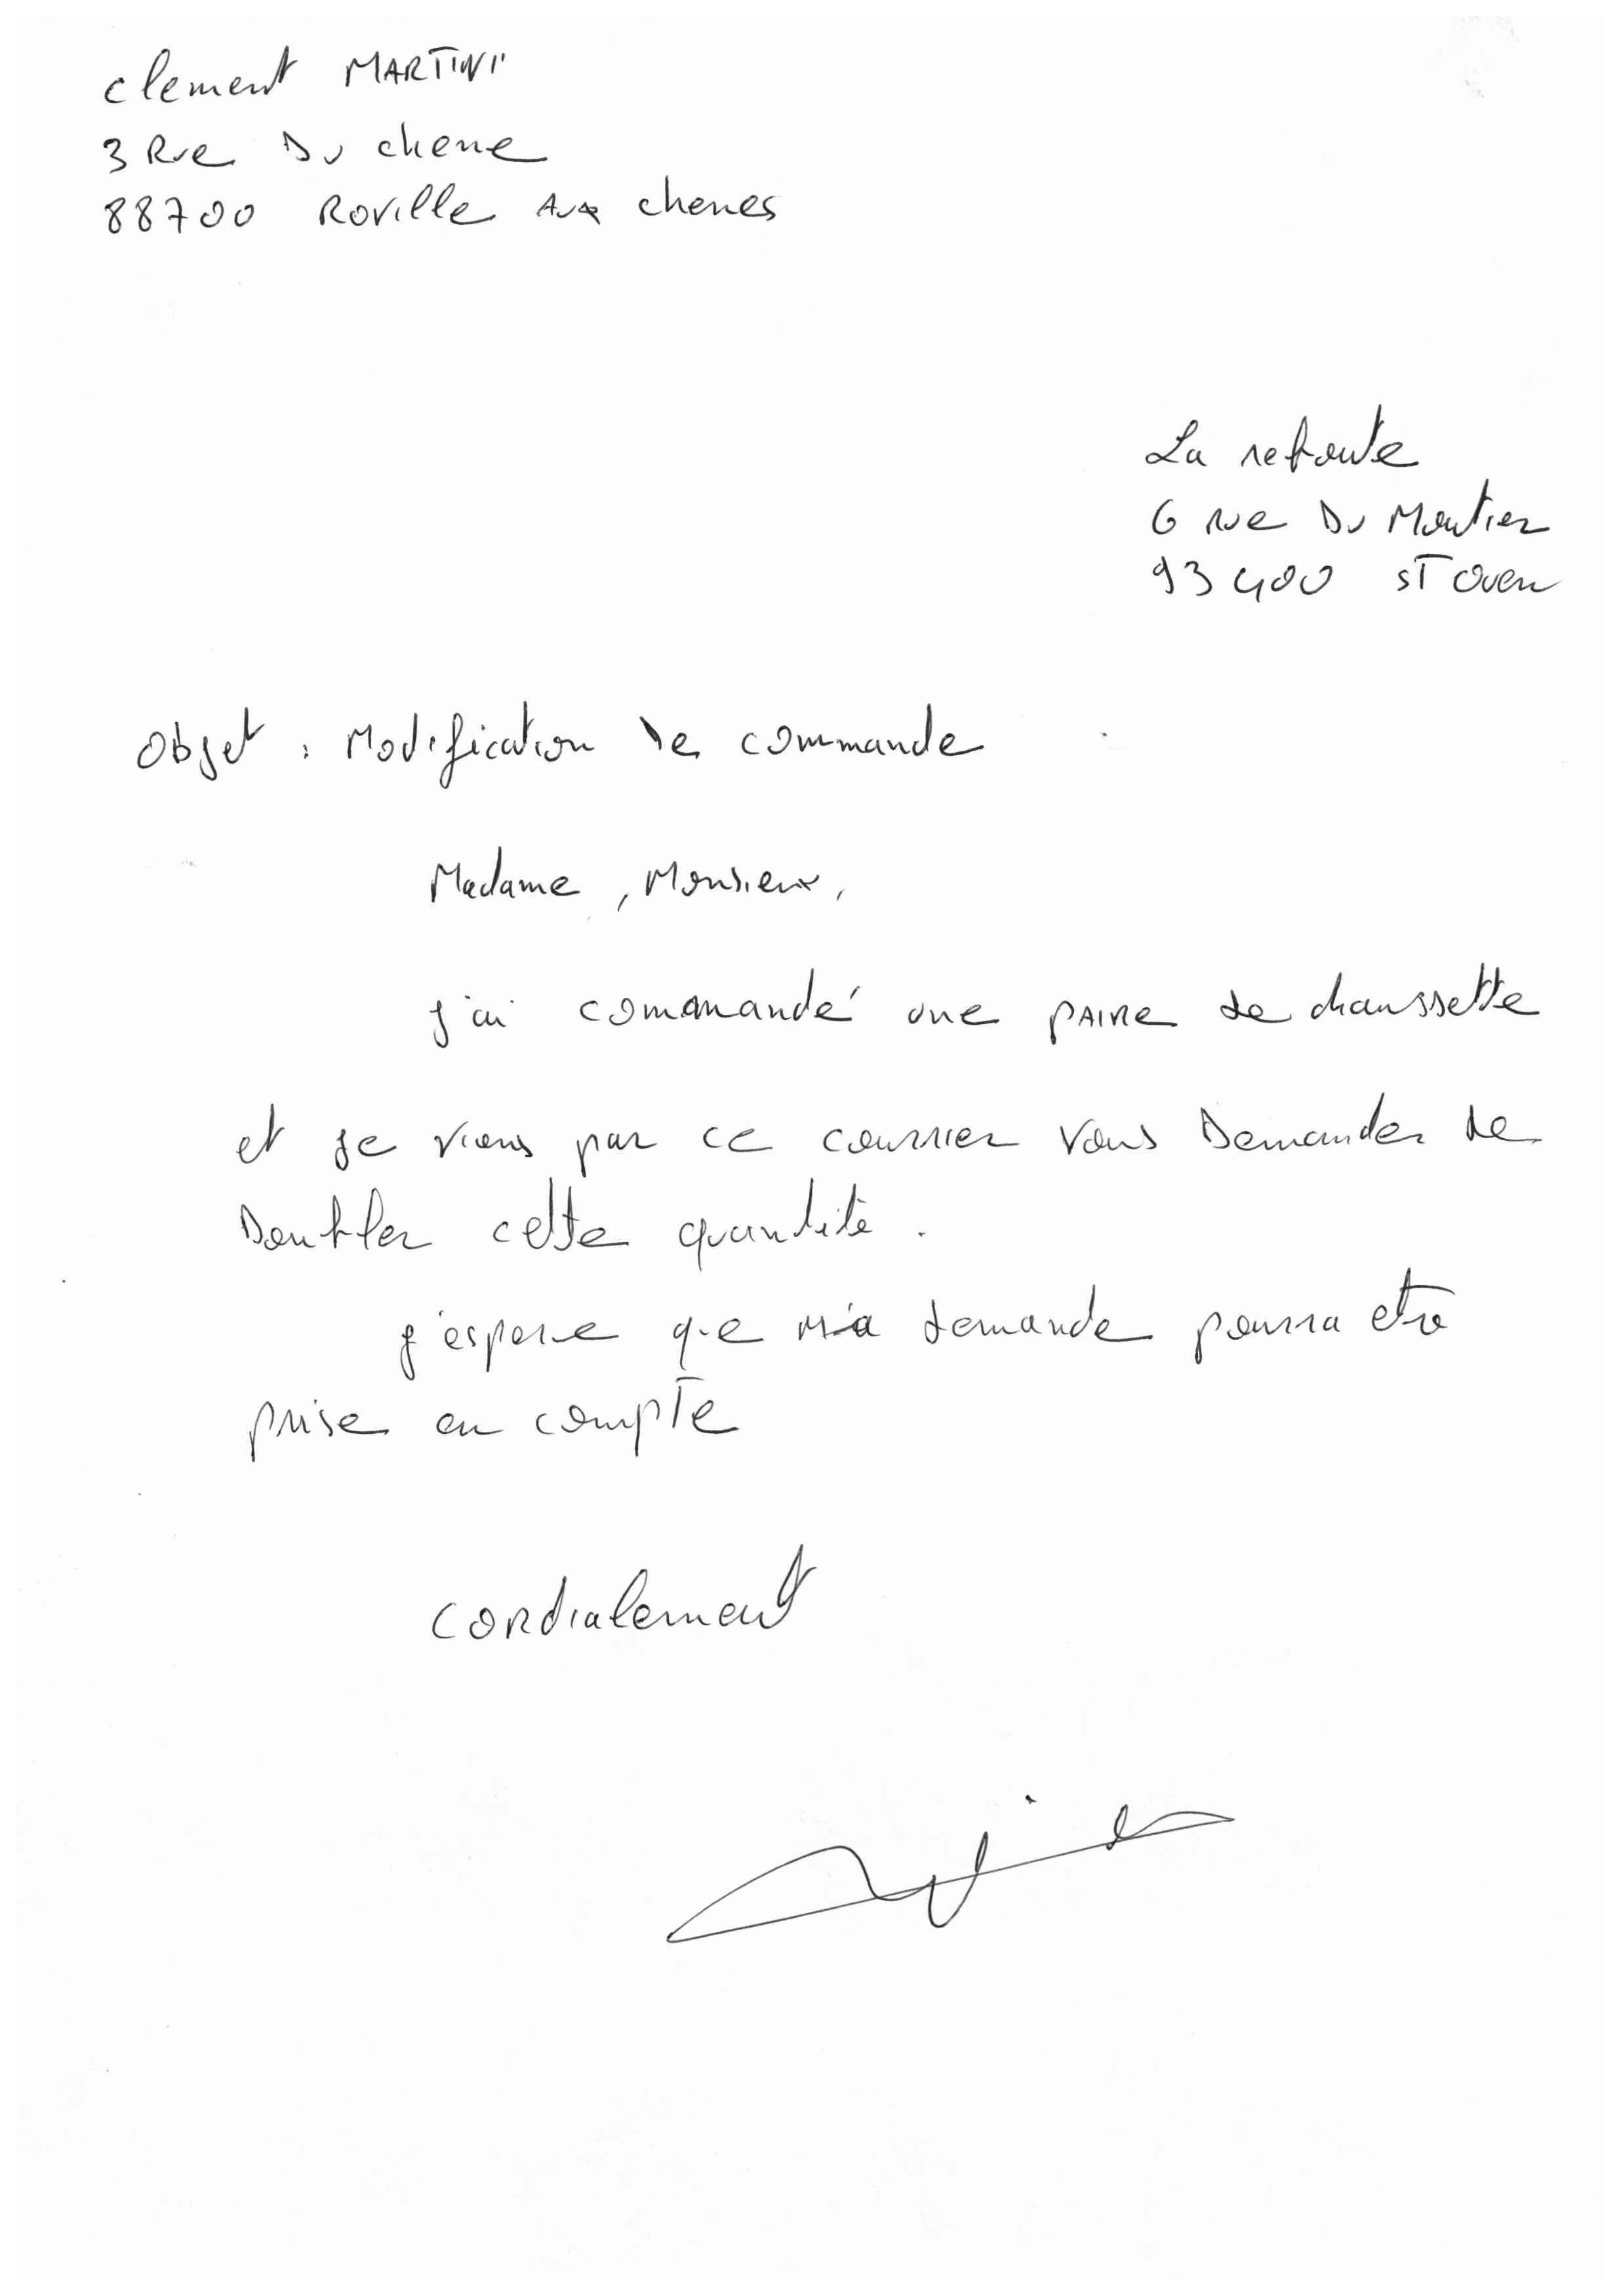 Clement MARTINI
3 Rue Du chene
88700 Roville Aux chenes
La retoute
6 rue Du Moutier
93400 ST Ouen
Objet : Modification de commande
Madame, Monsieur,
j'ai commandé une paire de chaussette
et je viens par ce courrier vous Demander de
Doubler cette quantité.
j'espere que ma demande pourra etre
prise en compte
Cordialement